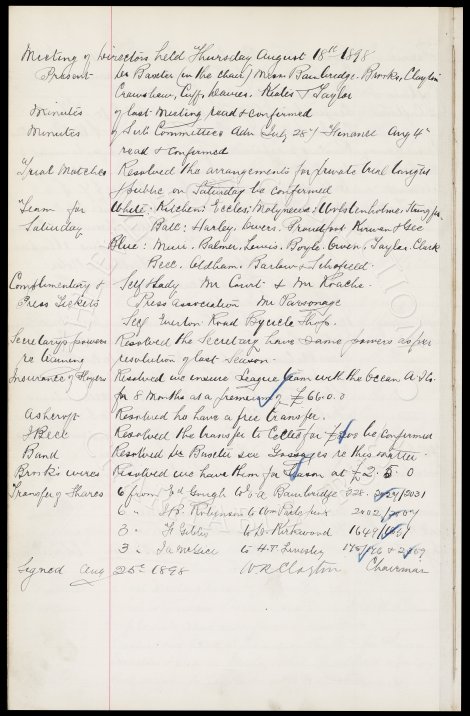 Meeting of Directors held Thursday August 18th 1898
Present Dr Baxter (in the chair) Messrs Bainbridge. Brooks, Clayton
Crawshaw, Cuff, Leavies. Keates & Taylor
Minutes of last Meeting read & confirmed
Minutes of Sub Committees Adv July 28th & Finance Aug 4th
read & confirmed
"Trial Matches Resolved the arrangements for private trial tonight
& public on Saturday be confirmed
"Team for Saturday White: Kitchen: Eccles: Molyneux: Wolstenholme: Stringfer
Ball: Harley. Owers. Proudfoot Kirwan & Gee
Blue: Muir. Balmer. Lewis. Boyle. Owen. Taylor. Clark
Bell. Oldham. Barlow & Schofield
Complimentary & Press Tickets Self & Lady Mr Court & Mr Roache
Press Association Mr Parsonage
Self Everton Road Bycicle Shop.
Secretarys powers re training Resolved the Secretary have same powers as per
resolution of last season
Insurance of Players Resolved we insure League team with the Ocean A & Co
for 8 Months at a premium of £66.0.0
Ashcroft Resolved he have a free transfer.
J Bell Resolved the transfer to Celtic for be confirmed
Band Resolved Dr Baxter see Gossages re this matter.
Brook's wires Resolved we have them for Season at £2.5.0
Transfer of Shares 6 from Jd Gough to Bainbridge 228.
6 " Robinson to Wm 2002
3 " Gibbs to D. Kirkwood 1649
3 " Wallace to H.T. Livesley
Signed Aug 25th 1898 W R Clayton Chairman